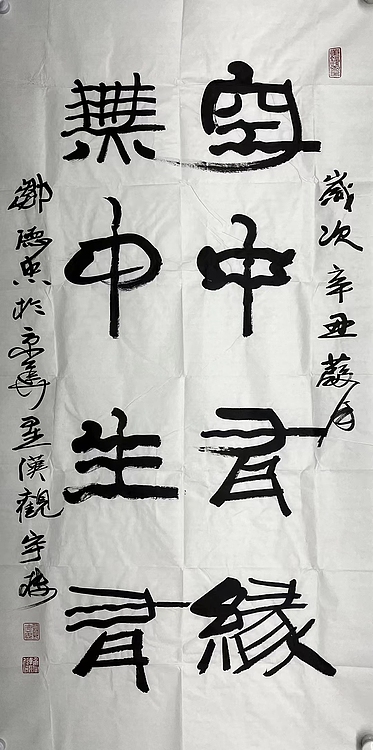 歲次辛丑月
空中有緣
無中生有
鄒德忠於京華星漢觀宇樓